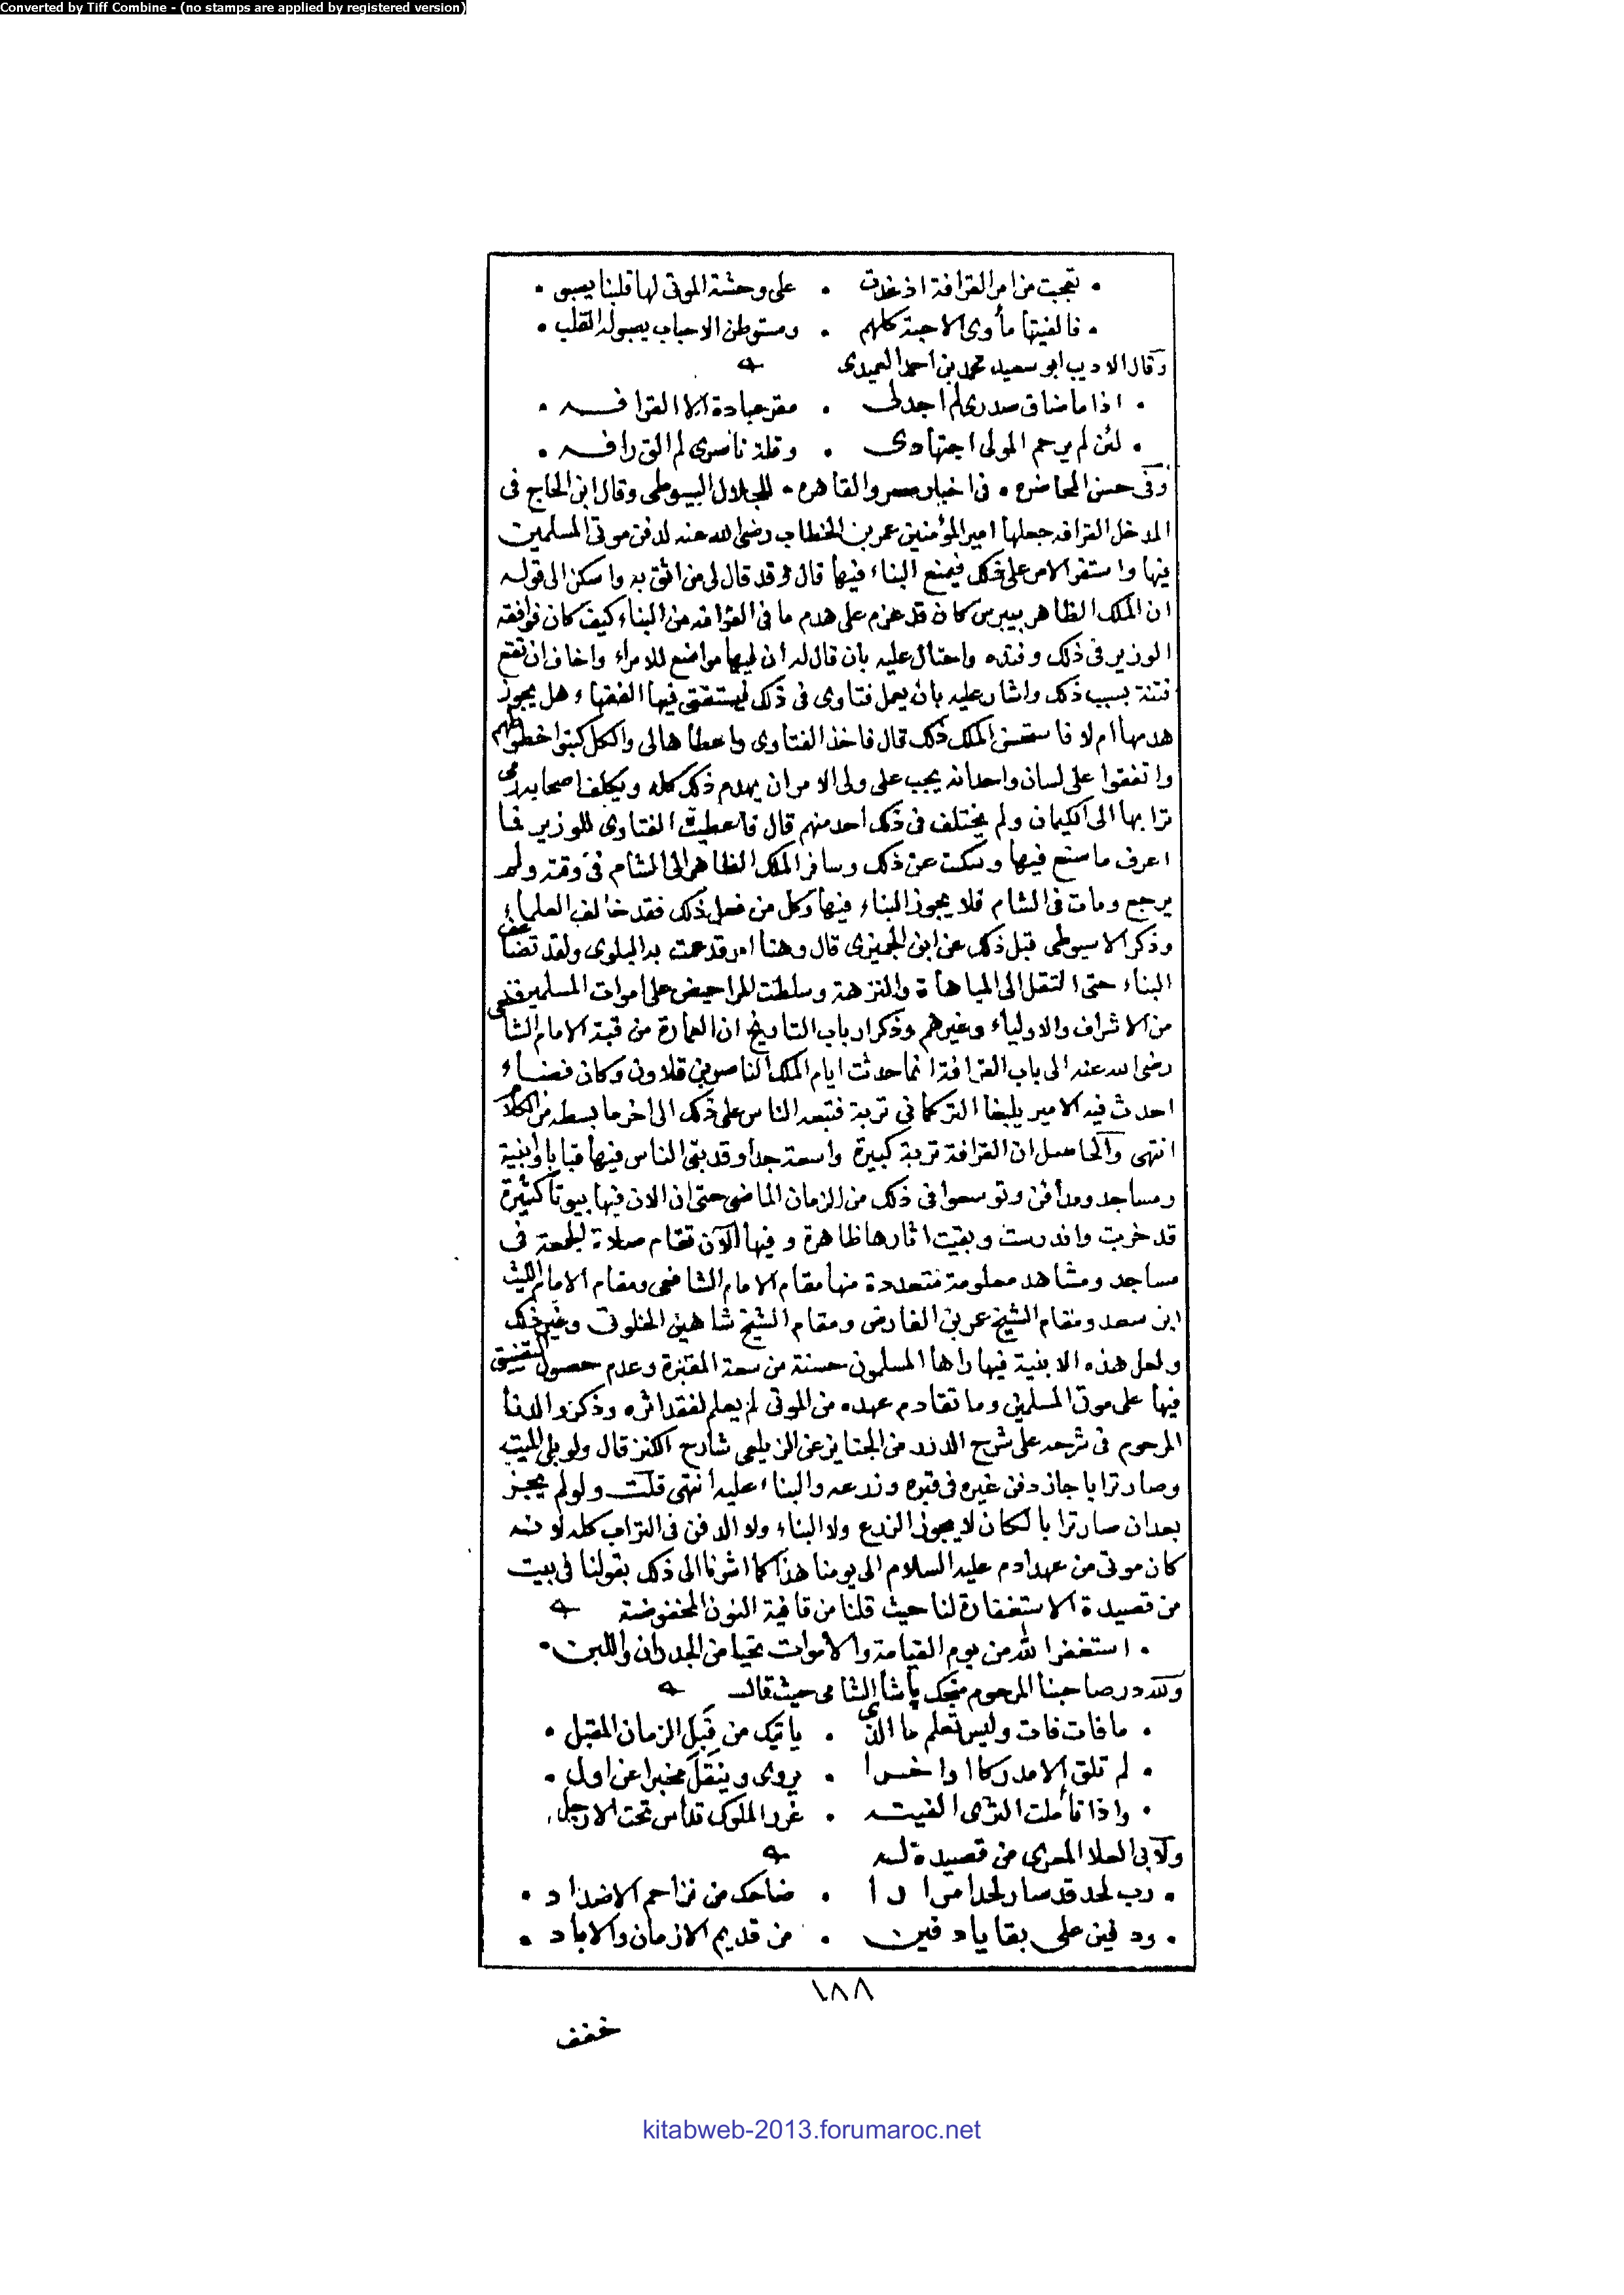 Converted by Tiff Combine - (no stamps are applied by registered version)
• تعجبت من امر القرافة اذ غدت • على وحشة الموتى لها قلبنا يصبو •
• فالفيتها مأوى الاحبة كلهم • ومستوطن الاحباب يصبو له القلب •
وقال الاديب ابو سعيد محمد بن احمد العميدى
• اذا ما ضاق صدرى لم اجد لى • مقر عبادة الا القرافه •
• لئن لم يرحم المولى اجتهادى • وقلة ناصرى لم الق رافه •
وفى حسن المحاضره • فى اخبار مصر والقاهره • للجلال السيوطى وقال ابن الحاج فى
المدخل القرافه جعلها امير المؤمنين عمر بن الخطاب رضى الله عنه لدفن موتى المسلمين
فيها واستقر الامر على ذلك فيمنع البناء فيها قال وقد قال لى من اثق به واسكن الى قوله
ان الملك الظاهر بيبرس كان قد عزم على هدم ما فى القرافه من البناء كيف كان فوافقه
الوزير فى ذلك وفنده واحتال عليه بان قال له ان فيها مواضع للامراء واخاف ان تقع
فتنة بسبب ذلك واشار عليه بان يعمل فتاوى فى ذلك ليستفتى فيها الفقهاء هل يجوز
هدمها ام لا فاستحسن الملك ذلك قال فاخذ الفتاوى واعطاها لى والكل كتبوا خطوطهم
واتفقوا على لسان واحد انه يجب على ولى الامر ان يهدم ذلك كله ويكلف اصحابه رمى
ترابها الى الكيمان ولم يختلف فى ذلك احد منهم قال فاعطيت الفتاوى للوزير فما
اعرف ما صنع فيها وسكت عن ذلك وسافر الملك الظاهر الى الشام فى وقته ولم
يرجع ومات فى الشام فلا يجوز البناء فيها وكل من فعل ذلك فقد خالف العلماء
وذكر الاسيوطى قبل ذلك عن ابن الجميزى قال وهنا امر قد عمت به البلوى ولقد تضاعف
البناء حتى انتقل الى المباهاة والنزهة وسلطت المراحيض على اموات المسلمين
من الاشراف والاولياء وغيرهم وذكر ارباب التاريخ ان العمارة من قبة الامام الشافعى
رضى الله عنه الى باب القرافة انما حدثت ايام الملك الناصر بن قلاون وكان فضاء
احدث فيه الامير يلبغا التركمانى تربة فتبعه الناس على ذلك الى اخر ما بسطه من الكلام
انتهى والحاصل ان القرافة تربة كبيرة واسعة جدا وقد بنى الناس فيها قبابا وابنية
ومساجد ومدافن وتوسعوا فى ذلك من الزمان الماضى حتى ان الان فيها بيوتا كثيرة
قد خربت واندرست وبقيت اثارها ظاهرة وفيها الآن تقام صلاة الجمعة فى
مساجد ومشاهد معلومة متعددة منها مقام الامام الشافعى ومقام الامام الليث
ابن سعد ومقام الشيخ عمر بن الفارض ومقام الشيخ شاهين الخلوتى وغير ذلك
ولعل هذه الابنية فيها راها المسلمون حسنة من سعة المقبرة وعدم حصول التضييق
فيها على موتى المسلمين وما تقادم عهده من الموتى لم يعلم لفقد اثره وذكر والدنا
المرحوم فى شرحه على شرح الدرر من الجنايز عن الزيلعى شارح الكنز قال ولو بلى الميت
وصار ترابا جاز دفن غيره فى قبره وزرعه والبناء عليه انتهى قلت ولو لم يجز
بعد ان صار ترابا لكان لا يجوز الزرع ولا البناء ولا الدفن فى التراب كله لانه
كان موتى من عهد ادم عليه السلام الى يومنا هذا كما اشرنا الى ذلك بقولنا فى بيت
من قصيدة الاستغفارة لنا حيث قلنا من قافية النون المخفوضة
• استغفر الله من يوم القيامة والاموات تحيا من الجدران واللبن •
ولله در صاحبنا المرحوم منجك پاشا الشامى حيث قال
• ما فات فات وليس تعلم ما الذى • ياتيك من قبل الزمان المقبل •
• لم تلق الا مدركا اواخرا • يروى وينقل مخبرا عن اول •
• واذا تأملت الثرى الفيته • غرر الملوك تداس تحت الارجل •
ولابى العلا المعرى من قصيدة له
• رب لحد قد صار لحدا مرارا • ضاحك من تزاحم الاضداد •
• ودفين على بقايا دفين • من قديم الازمان والاباد •
١٨٨
خفف
kitabweb-2013.forumaroc.net